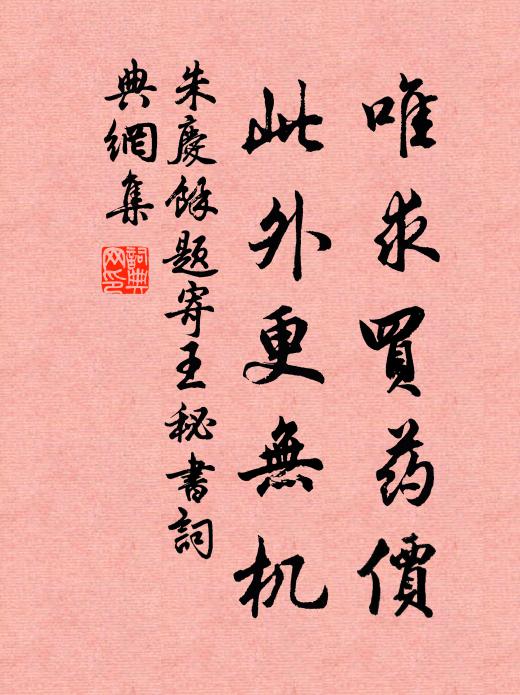 唯求買药價
此外更無机
朱慶餘题寄王秘書詞
典網集
詞典网印